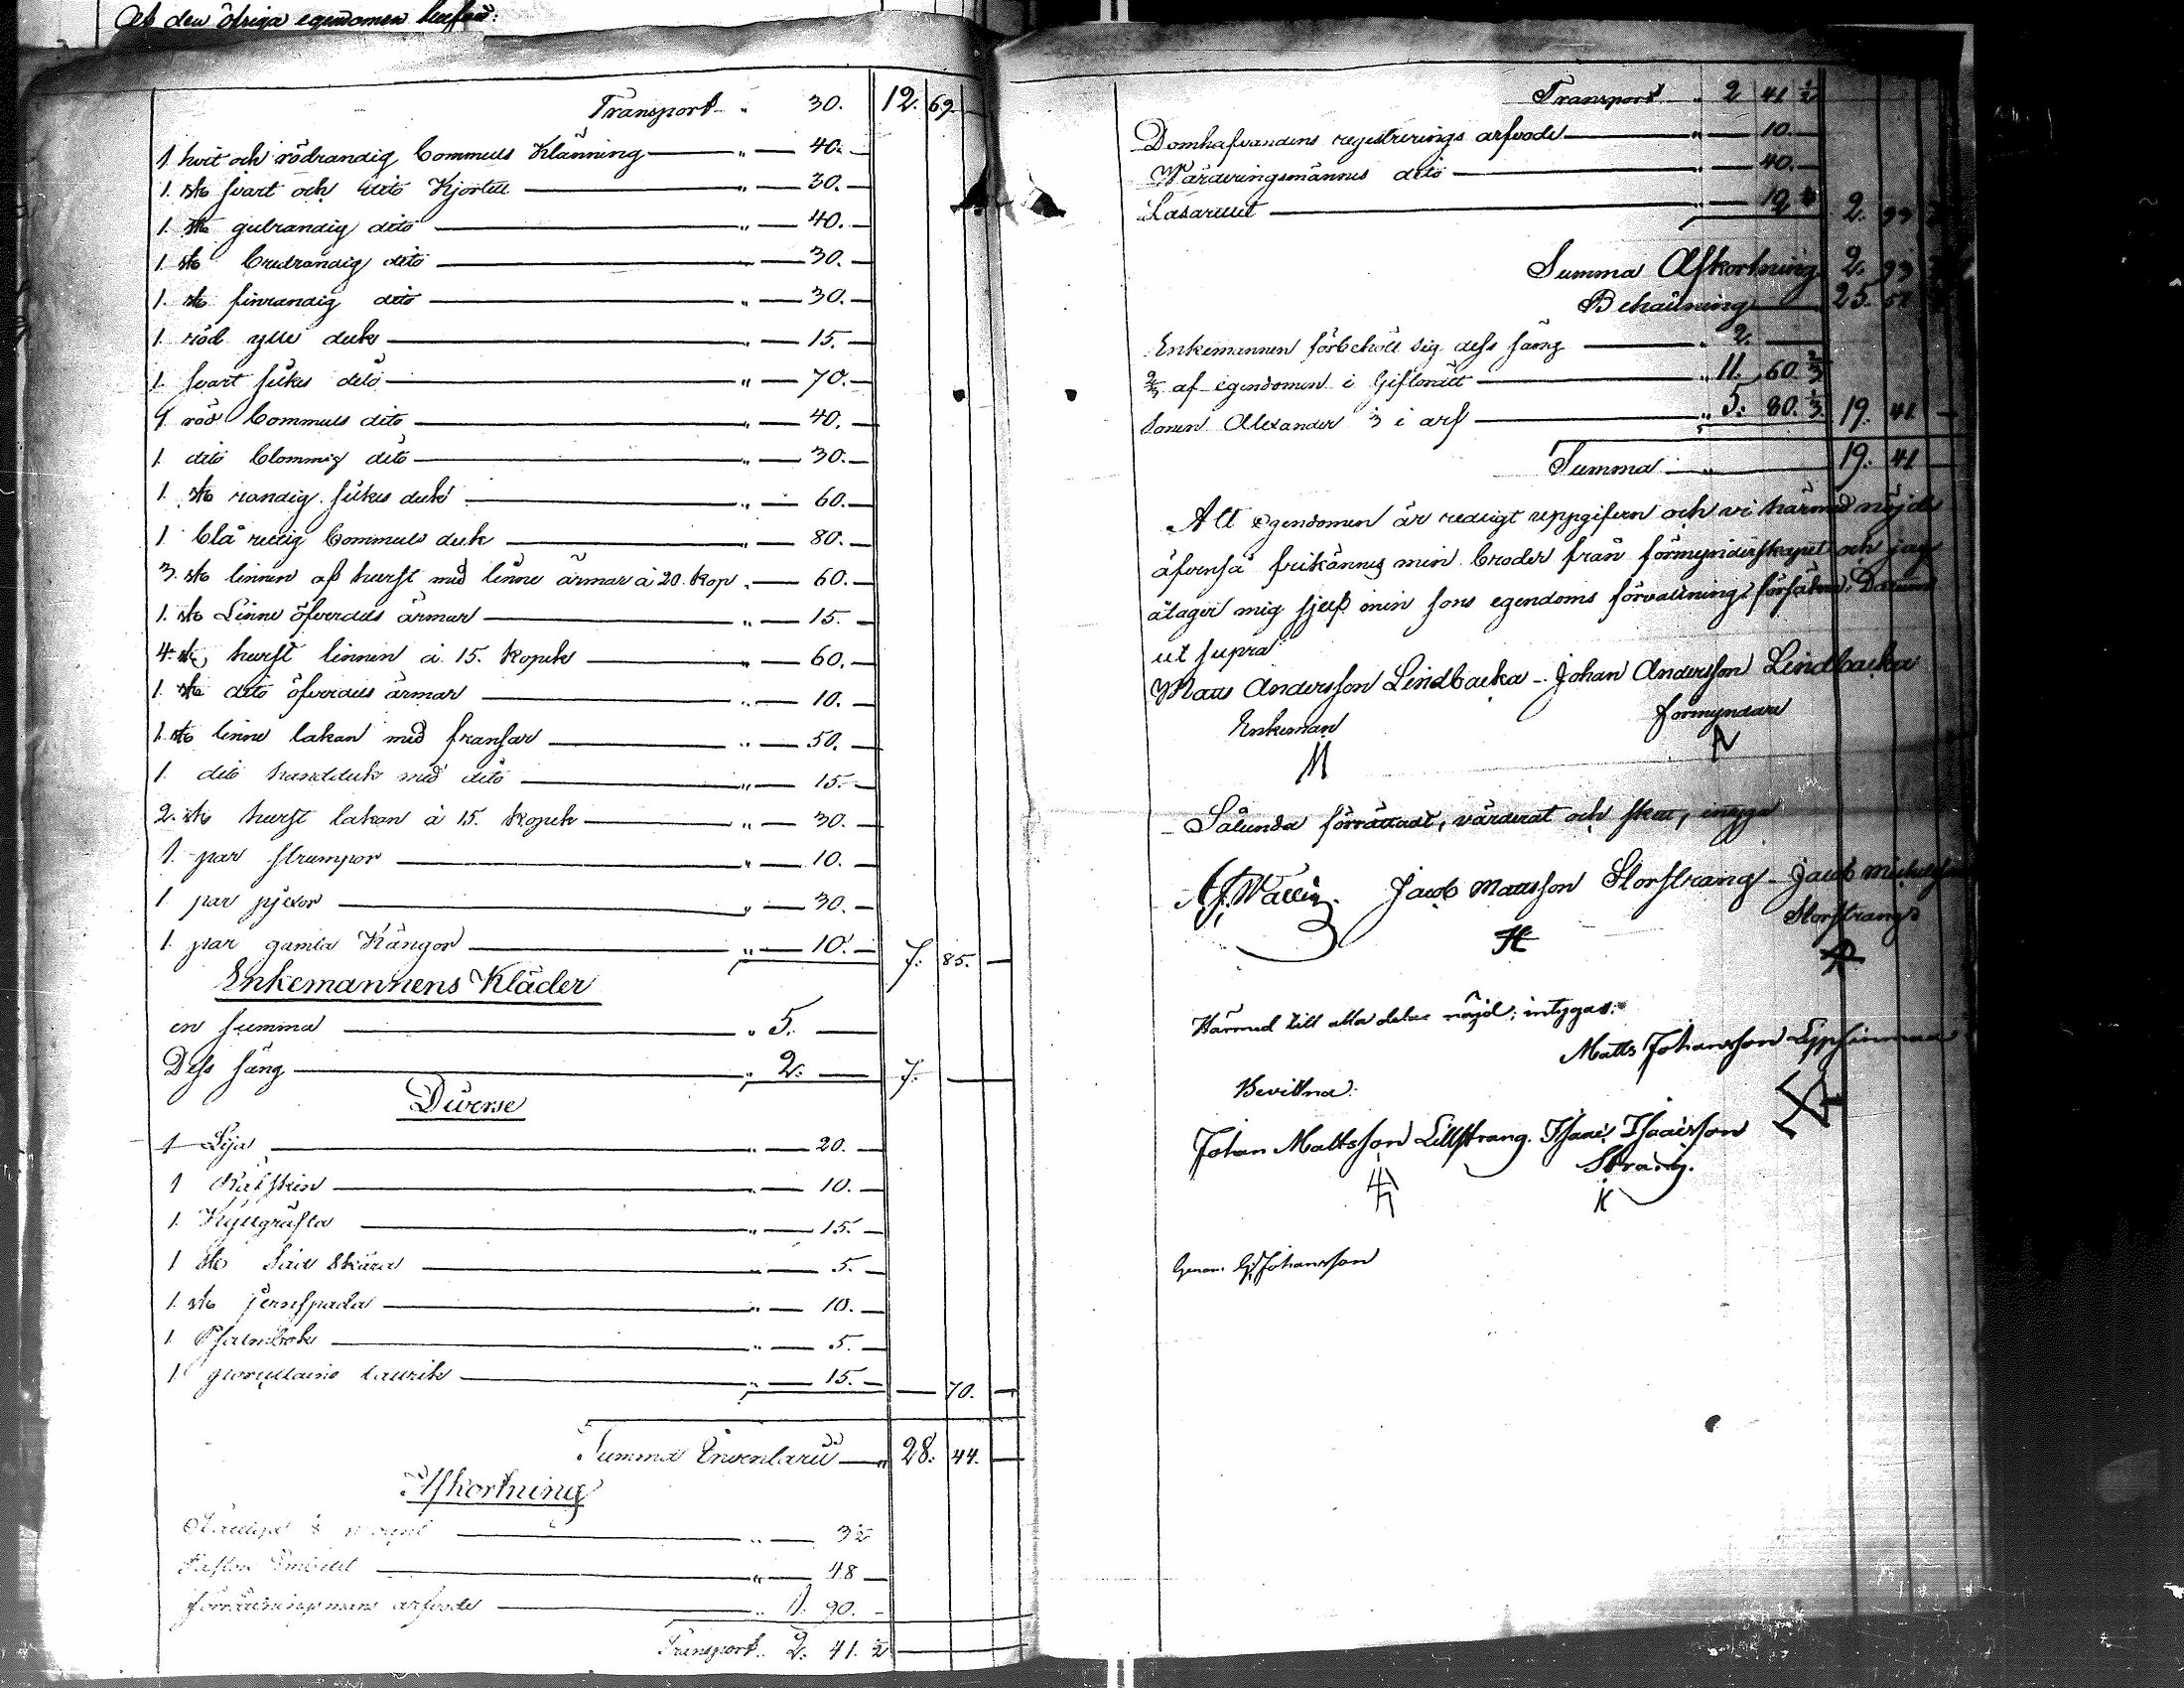 Af den öfriga egendomen
Transport " 30. 12. 69.
1 hvit och rödrandig Bommuls Klänning " 40.
1. st. svart och dito Kjortel " 30.
1 st. gulrandig dito " 40.
1 st. bredrandig dito " 30.
1 st. finrandig dito " 30.
1 röd ylle duk " 15.
1. svart silkes dito " 70.
1 röd bommuls dito " 40.
1. dito blommig dito " 30.
1. st. randig silkes duk " 60.
1 blå rutig bommuls duk " 80.
3. st. linnen af hurst med linne ärmar à 20. Kop. 60.
1. st. Linne öfverdels ärmar " 15.
4. st. hurst linnen à 15. Kopek " 60.
1 st. dito öfverdels ärmar " 10.
1. st. linne lakan med fransar " 50.
1. dito handduk med dito " 15.
2. st. hurst lakan à 15. Kopek " 30.
1. par strumpor " 10.
1. par pjexor " 30.
1. par gamla Kängor " 10. 7. 85.
Enkemannens Kläder
en summa " 5.
Dess säng " 2. 7.
Diverse
1 Lija " 20.
1 10.
1. " 15.
1 st. Skära " 5.
1. st. jernspada " 10.
1 Psalmbok " 5.
1 porcellains " 15. 70.
Summa Inventarii " 28. 44.
Afkortning
" 3½
" 48
förrättningsmans arfvode " 1. 90.
Transport. 2. 41. ½
Transport " 2 41 ½
Domhafvandens registrerings arfvode " 10.
Värderingsmännes dito 40.
Lasarettet 2. 93
Summa Afkortning 2. 93
Behållning 25. 51
Enkemannen förbehöll sig dess säng " 2.
⅔ af egendomen i Giftorätt " 11. 60. ⅔
Sonen Alexander ⅓ i arf " 5. 80. ⅓ 19. 41
Summa " 19. 41
Alt egendomen är redligt uppgifven och vi härmed nöjde
äfvenså frikännes min broder från förmynderskapet och jag
åtager mig sjelf min sons egendoms förvaltning försäkra. Datum
ut supra
Matts Andersson Lindbacka - Johan Andersson Lindbacka
Enkeman förmyndare
M
Sålunda förrättadt, värderat och skett, intyga
Wallin. Jacob Mattsson Storstrang - Jacob
Storstrang
Härmed till alla delar nöjd; intygas:
Matts Johansson
Bevittna:
Johan Mattsson Lillstrang. Isaac Isacsson
Strang.
K
Genom Johansson